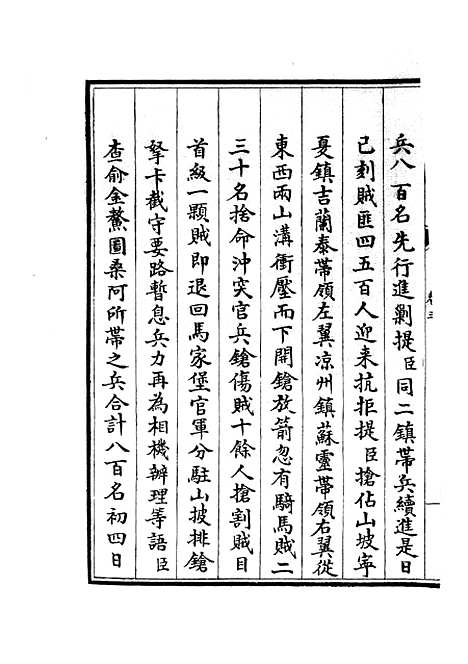 兵八百名先行進剿提臣同二鎮帶兵續進是日
已刻賊匪四五百人迎来抗拒提臣搶佔山坡寧
夏鎮吉蘭泰帶領左翼凉州鎮蘇靈帶領右翼從
東西兩山溝衝壓而下開鎗放箭忽有騎馬賊二
三十名捨命沖突官兵鎗傷賊十餘人搶割賊目
首級一顆賊即退回馬家堡官軍分駐山坡排鎗
拏卡截守要路暫息兵力再為相機辦理等語臣
查俞金鰲圖桑阿所帶之兵合計八百名初四日